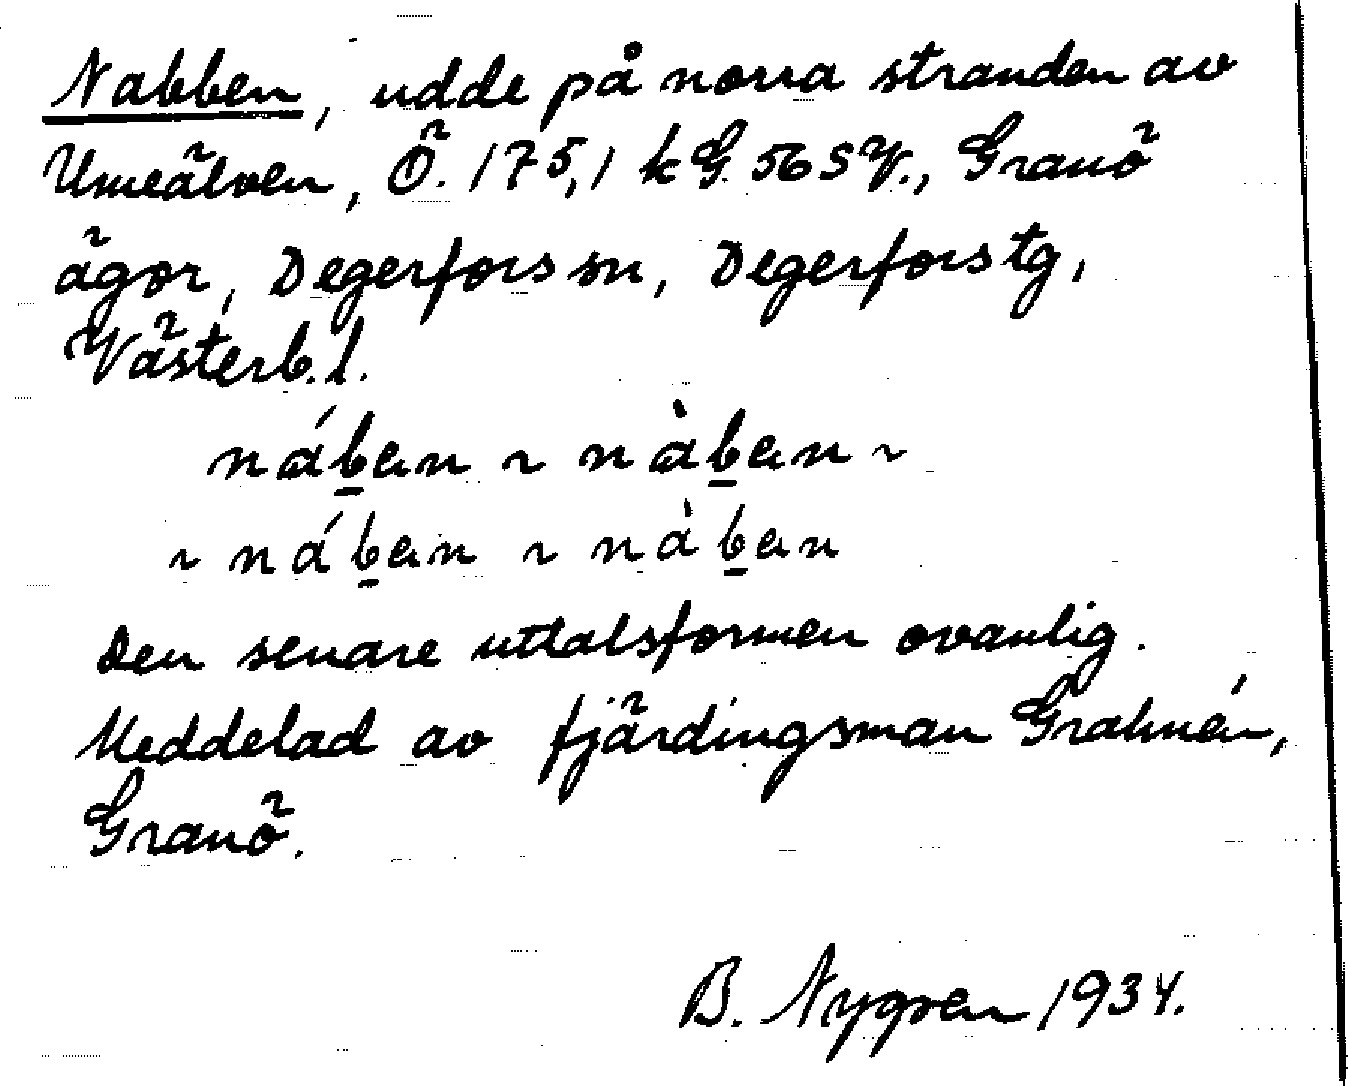 Nabben, udde på norra stranden av
Umeälven, Ö. 175,1 kG. 56 SV., Granö
ägor, Degerfors sn, Degerfors tg,
Västerb. l.
náb̲en ~ nàb̲en ~
~ náb̲en ~ nàb̲en
Den senare uttalsformen ovanlig.
Meddelad av fjärdingsman Grahnén,
Granö.
B. Nygren 1934.